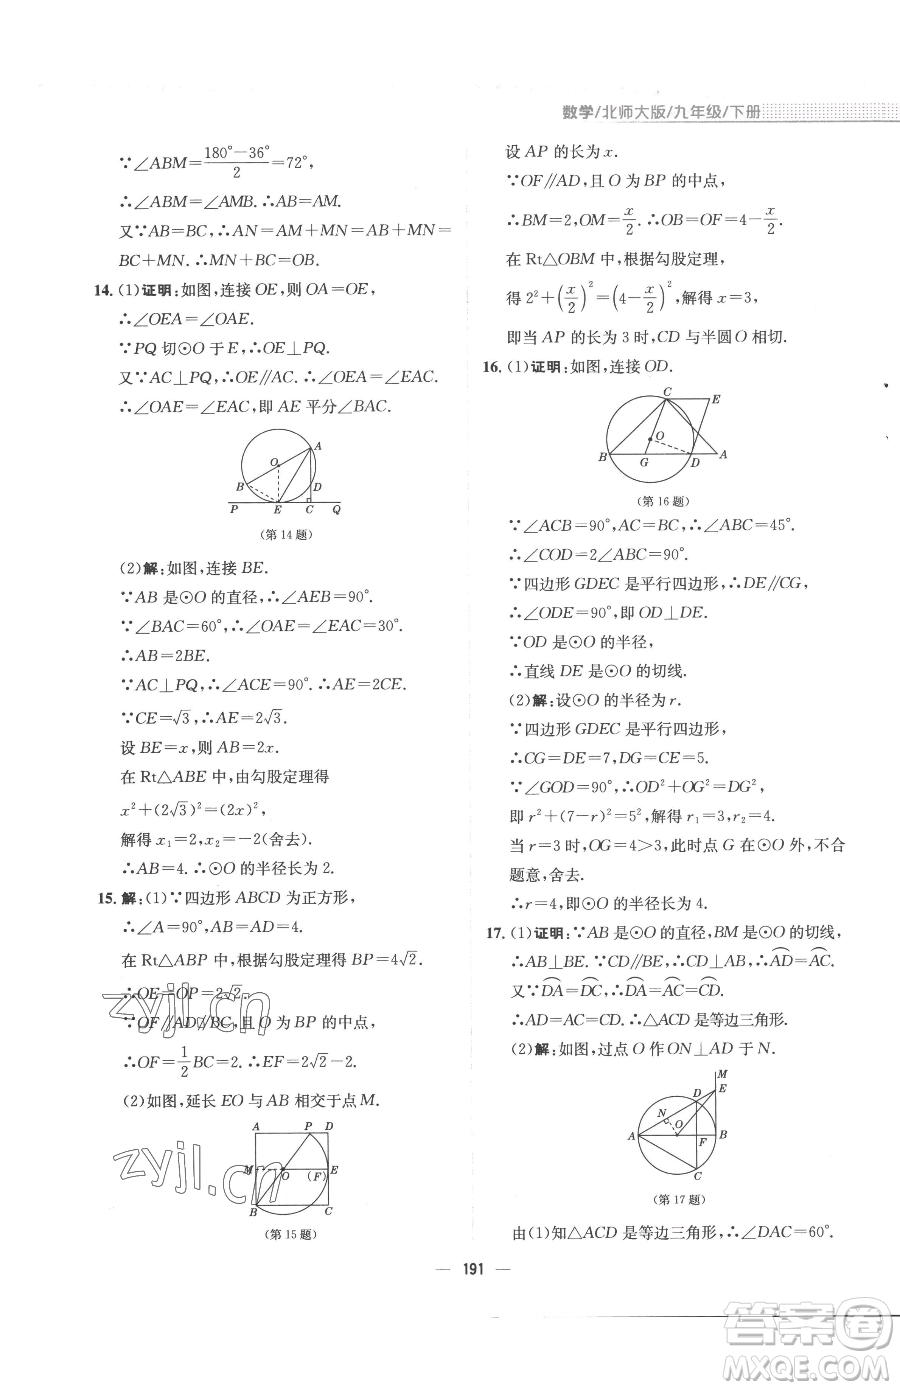 数学/北师大版/九年级/下册
∵∠ABM=(180°-36°)/2=72°,
∴∠ABM=∠AMB.∴AB=AM.
又∵AB=BC,∴AN=AM+MN=AB+MN=
BC+MN.∴BC=OB.
14.(1)证明:如图,连接OE,则OA=OE,
∴∠OEA=∠OAE.
∵PQ切⊙O于E,∴OE⊥PQ.
又∵AC⊥PQ,∴OE∥AC.∴∠OEA=∠EAC.
∴∠OAE=∠EAC,即AE平分∠BAC.
A
O
B
D
P
E
C
Q
(第14题)
(2)解:如图,连接BE.
∵AB是⊙O的直径,∴∠AEB=90°.
∵∠BAC=60°,∴∠OAE=∠EAC=30°.
∴AB=2BE.
∵AC⊥PQ,∴∠ACE=90°.∴AE=2CE.
∵CE=√3,∴AE=2√3.
设BE=x,则AB=2x.
在Rt△ABE中,由勾股定理得
x²+(2√3)²=(2x)²,
解得x₁=2,x₂=-2(舍去).
∴AB=4.∴⊙O的半径长为2.
15.解:(1)∵四边形ABCD为正方形,
∴∠A=90°,AB=AD=4.
在Rt△ABP中,根据勾股定理得BP=4√2.
∴OE=OP=2√2.
∵OF∥AD∥BC,且O为BP的中点,
∴OF=1/2BC=2.∴EF=2√2-2.
(2)如图,延长EO与AB相交于点M.
A
P
D
M
O
(F)
E
B
C
(第15题)
设AP的长为x.
∵OF∥AD,且O为BP的中点,
∴BM=2,OM=x/2.∴OB=OF=4-x/2.
在Rt△OBM中,根据勾股定理,
得2²+(x/2)²=(4-x/2)²,解得x=3,
即当AP的长为3时,CD与半圆O相切.
16.(1)证明:如图,连接OD.
C
E
O
B
G
D
A
(第16题)
∵∠ACB=90°,AC=BC,∴∠ABC=45°.
∴∠COD=2∠ABC=90°.
∵四边形GDEC是平行四边形,∴DE∥CG,
∴∠ODE=90°,即OD⊥DE.
∵OD是⊙O的半径,
∴直线DE是⊙O的切线.
(2)解:设⊙O的半径为r.
∵四边形GDEC是平行四边形,
∴CG=DE=7,DG=CE=5.
∵∠GOD=90°,∴OD²+OG²=DG²,
即r²+(7-r)²=5²,解得r₁=3,r₂=4.
当r=3时,OG=4>3,此时点G在⊙O外,不合
题意,舍去.
∴r=4,即⊙O的半径长为4.
17.(1)证明:∵AB是⊙O的直径,BM是⊙O的切线,
∴AB⊥BE.∵CD∥BE,∴CD⊥AB.∴A͡D=A͡C.
又∵D͡A=D͡C,∴A͡D=A͡C=C͡D.
∴AD=AC=CD.∴△ACD是等边三角形.
(2)解:如图,过点O作ON⊥AD于N.
M
D
E
N
O
A
F
B
C
(第17题)
由(1)知△ACD是等边三角形,∴∠DAC=60°.
191
zyjl.cn
zyjl.cn
答案圈
MXQE.COM